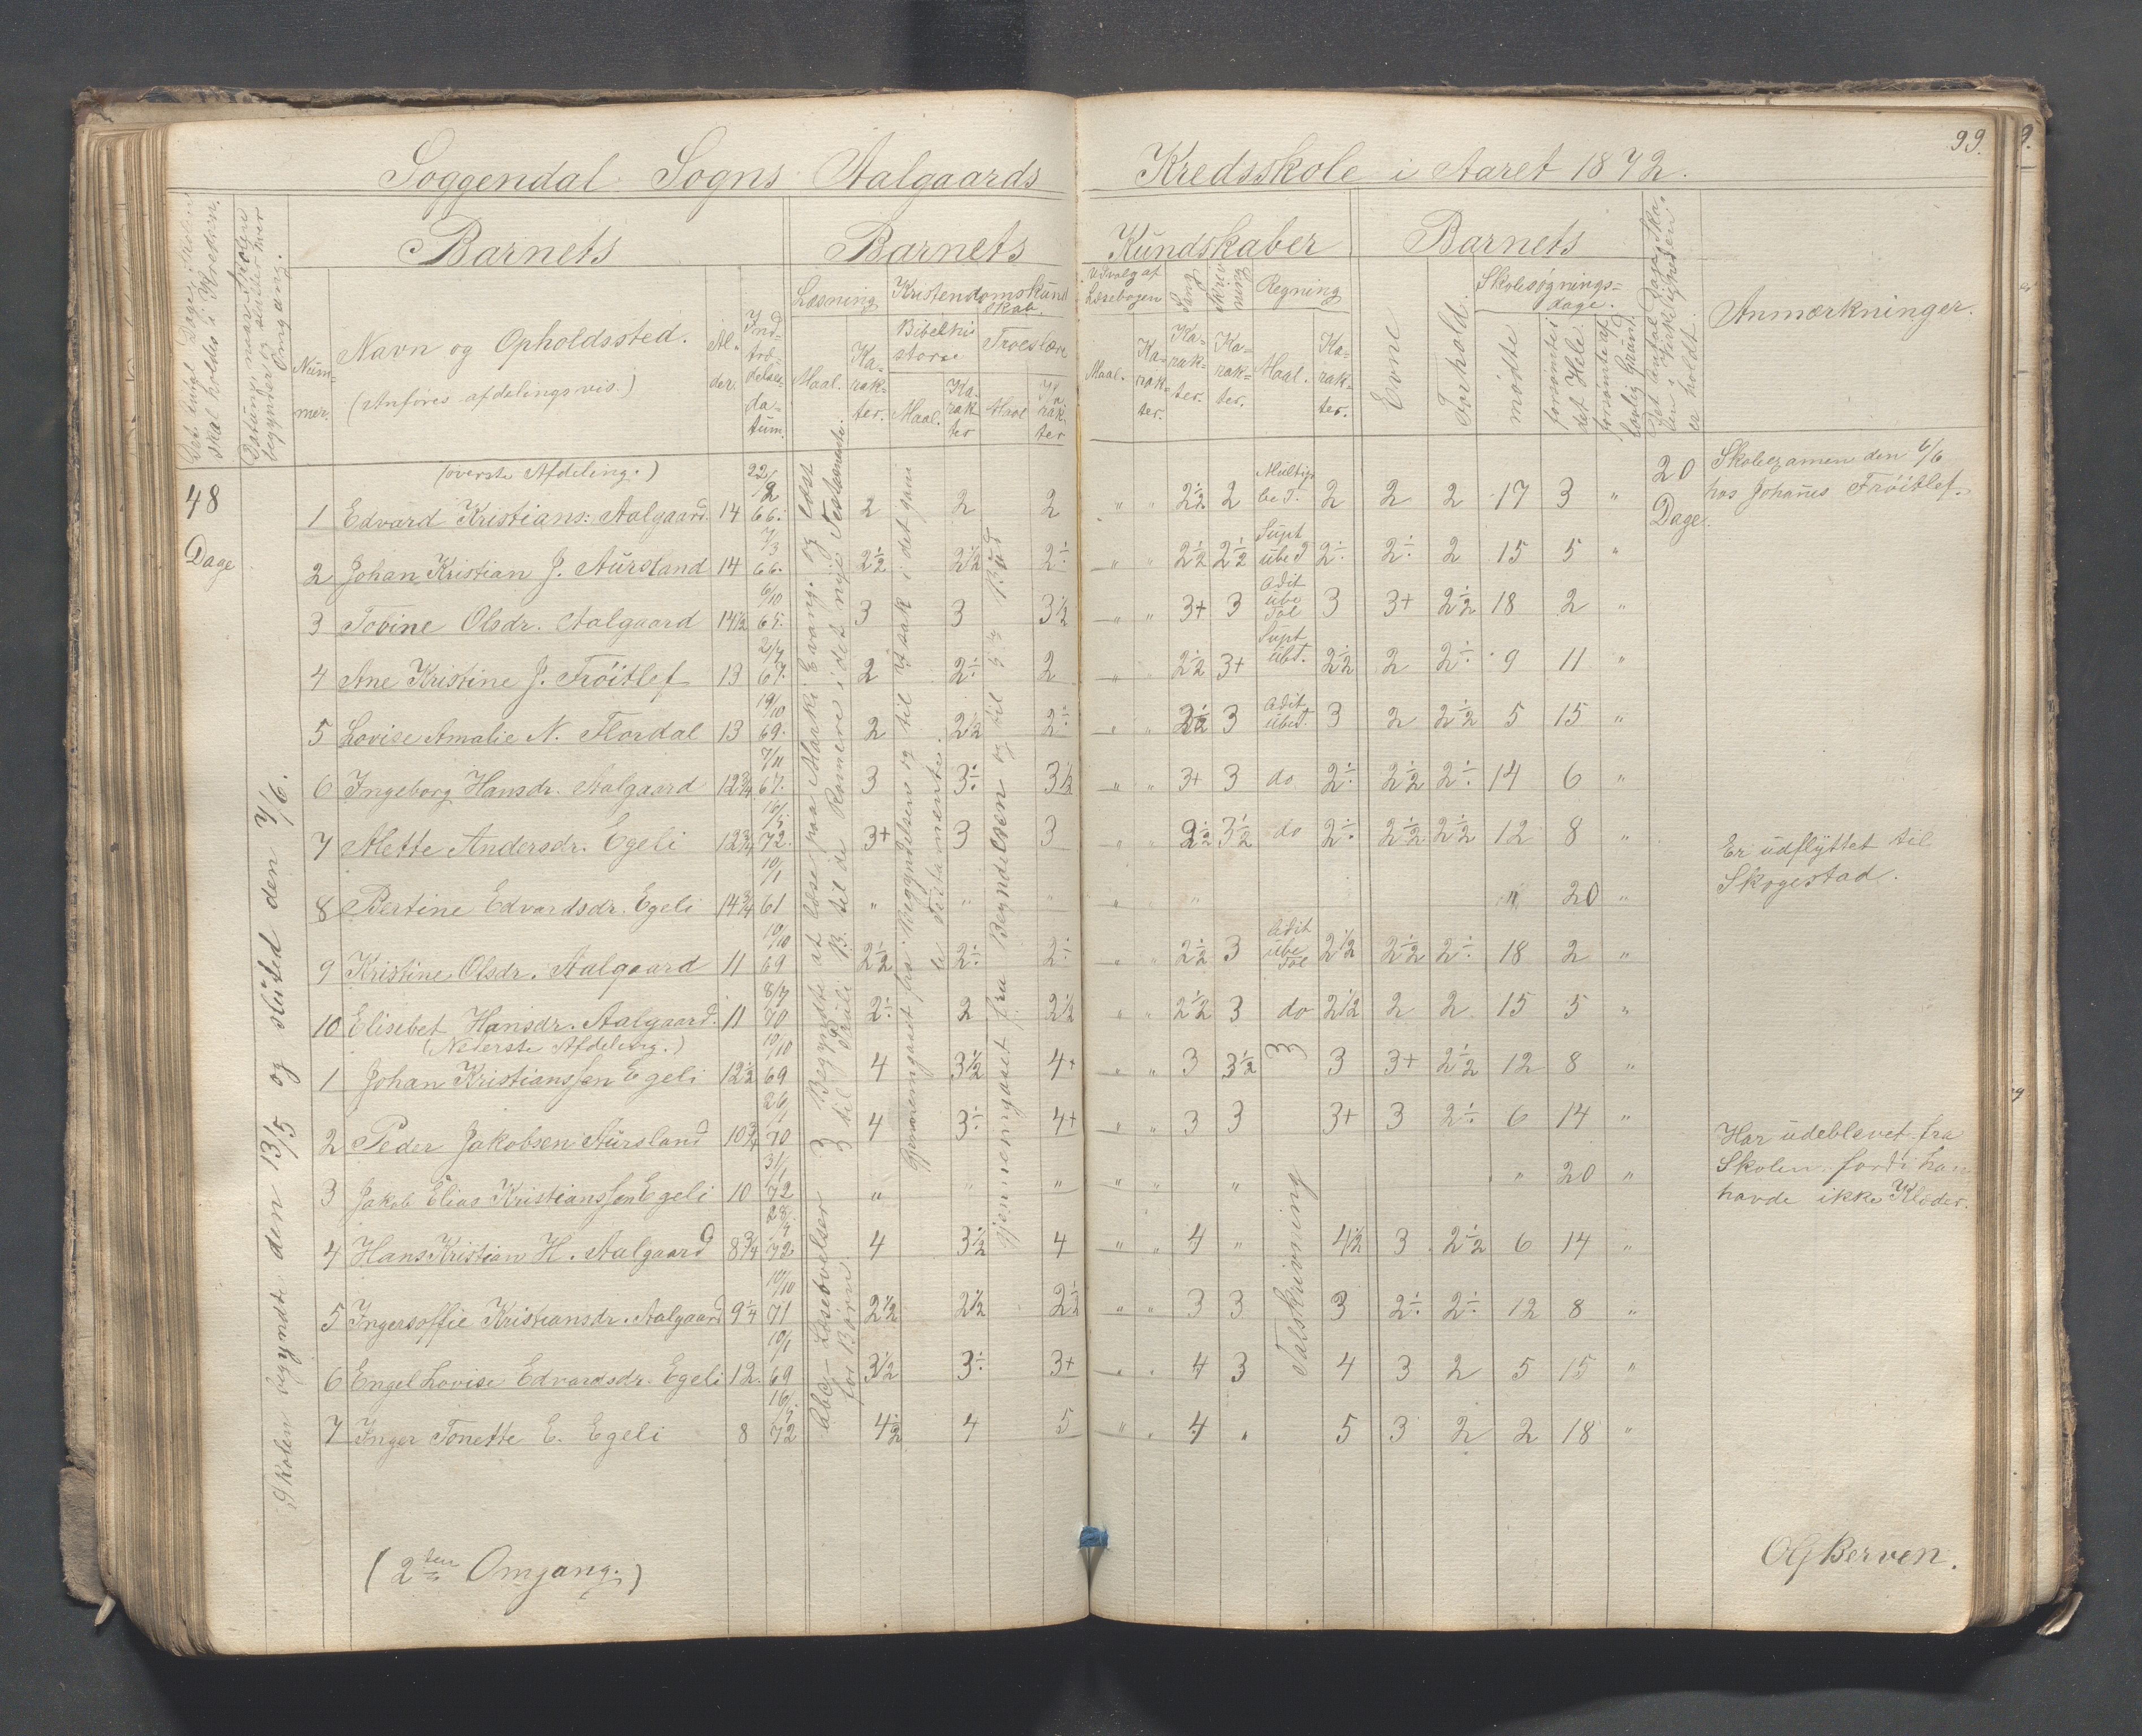 99.
Soggendal Sogns Aalgaards Kredsskole i Aaret 1872.
Det antal Dage Skolen skal holdes i Kredsen.
Datum, naar Skolen begynder og slutter hver Omgang.
Barnets
Barnets
Kundskaber
Barnets
Nummer.
Navn og Opholdssted.
(Anføres afdelingsvis.)
Alder.
Indtrædelsesdatum.
Læsning
Kristendomskundskab.
Bibelhistorie
Troeslære
Maal. Karakter.
Maal. Karakter
Maal Karakter
Udvalg af Læsebogen
Maal. Karakter.
Sang
Karakter.
Skrivning
Karakter.
Regning
Maal. Karakter.
Evne
Forhold.
Skolesøgningsdage.
mødte
forsømte i det Hele.
forsømte af lovlig Grund.
Det Antal Dage Skolen i Virkeligheden er holdt.
Anmærkninger.
48 Dage
Skolen begyndte den 13/5 og sluted den 7/6.
(øverste Afdeling.)
1 Edvard Kristians: Aalgaard. 14 22/2 66. 2 2 2 " " 2½ 2 Multip be T. 2 2 2 17 3 "
2 Johan Kristian J. Aursland 14 7/3 66. 2½ 2½ 2÷ " " 2½ 2½ Supt ube T 2÷ 2÷ 2 15 5 "
3 Tovine Olsdr. Aalgaard 14½ 6/10 65. 3 3 3½ " " 3+ 3 Adit ube Tal 3 3+ 2½ 18 2 "
4 Ane Kristine J. Frøitlef 13 2/7 67. 2 2÷ 2 " " 2½ 3+ Supt ubT. 2½ 2 2÷ 9 11 "
5 Lovise Amalie N. Flordal 13 19/10 69. 2 2½ 2÷ " " 2½ 3 Adit ubeT. 3 2 2½ 5 15 "
6 Ingeborg Hansdr. Aalgaard 12¾ 7/11 67. 3 3÷ 3½ " " 3+ 3 do 2÷ 2½ 2÷ 14 6 "
7 Mette Andersdr. Egeli 12¾ 16/5 72. 3+ 3 3 " " 2½ 3½ do 2÷ 2½ 2½ 12 8 "
8 Bertine Edvardsdr. Egeli 14¾ 10/1 61 " " " " " " " 20 "
9 Kristine Olsdr. Aalgaard 11 10/10 69 2½ 2÷ 2÷ " " 2½ 3 Adit ube Tal 2½ 2½ 2÷ 18 2 "
10 Elisebet Hansdr. Aalgaard. 11 8/7 70 2÷ 2 2½ " " 2½ 3 do 2½ 2 2 15 5 "
(Nederste Afdeling.)
1 Johan Kristianssen Egeli 12½ 10/10 69 4 3½ 4+ " " 3 3½ 3 3 3+ 2½ 12 8 "
2 Peder Jakobsen Aursland 10¾ 26/1 70 4 3÷ 4+ " " 3 3 3+ 3 2÷ 6 14 "
3 Jakob Elias Kristianssen Egeli 10 31/1 72 " " " " " " " 20 "
4 Hans Kristian H. Aalgaard 8¾ 28/5 72 4 3½ 4 " " 4 " 4½ 3 2½ 6 14 "
5 Ingersoffie Kristiansdr. Aalgaard 9¼ 10/10 71 2½ 2½ 2½ " " 3 3 3 2÷ 2÷ 12 8 "
6 Engel Lovise Edvardsdr. Egeli 12. 10/1 69 3½ 3÷ 3+ " " 4 3 4 3 2 5 15 "
7 Inger Tonette E. Egeli 8 16/5 72 4½ 4 5 " " 4 " 5 3 2 2 18 "
Begyndte at læse paa Marki Evang. og læst
til Pauli B. til de Romnere i det nye Testamente.
Abc Læsetvelser
for Børn
Gjennemgaaet fra Begyndelsen og til Isak i det gam
le Testamente.
gjennemgaaet fra Begyndelsen og til 5te Bud
Talskrivning
20 Dage.
Skoleexamen den 6/6
hos Johanes Frøitlef.
Er udflyttet til
Skogestad.
Har udeblevet fra
Skolen fordi han
havde ikke Klæder.
(2den Omgang.)
OG Berven.